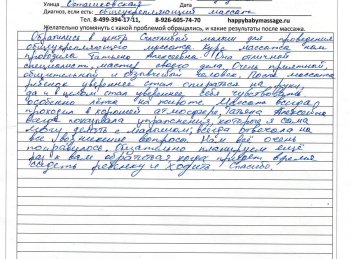 ул. Осташковская
Диагноз, если есть: общеукрепляющий массаж
Тел. 8-499-394-17-11, 8-926-605-74-70 happybabymassage.ru
Желательно упомянуть с какой проблемой обращались, и какие результаты после массажа.
Обратились в центр Счастливой малыш для проведения
общеукрепляющего массажа. Курс массажа нам
проводила Татьяна Алексеевна. Она отличный
специалист, мастер своего дела. Очень приятный,
общительный и отзывчивый человек. После массажа
ребенок увереннее стал опираться на руки,
да и в целом стал увереннее себя чувствовать
особенно лёжа на животе. Массаж всегда
проходил в хорошей атмосфере, Татьяна Алексеевна
всегда показывала упражнения, которые я сама
могу делать с малышом, всегда отвечала на
все возникшие вопросы. Нам всё очень
понравилось. Обязательно планируем ещё
раз к вам обратиться когда придёт время
сидеть ребенку и ходить. Спасибо.